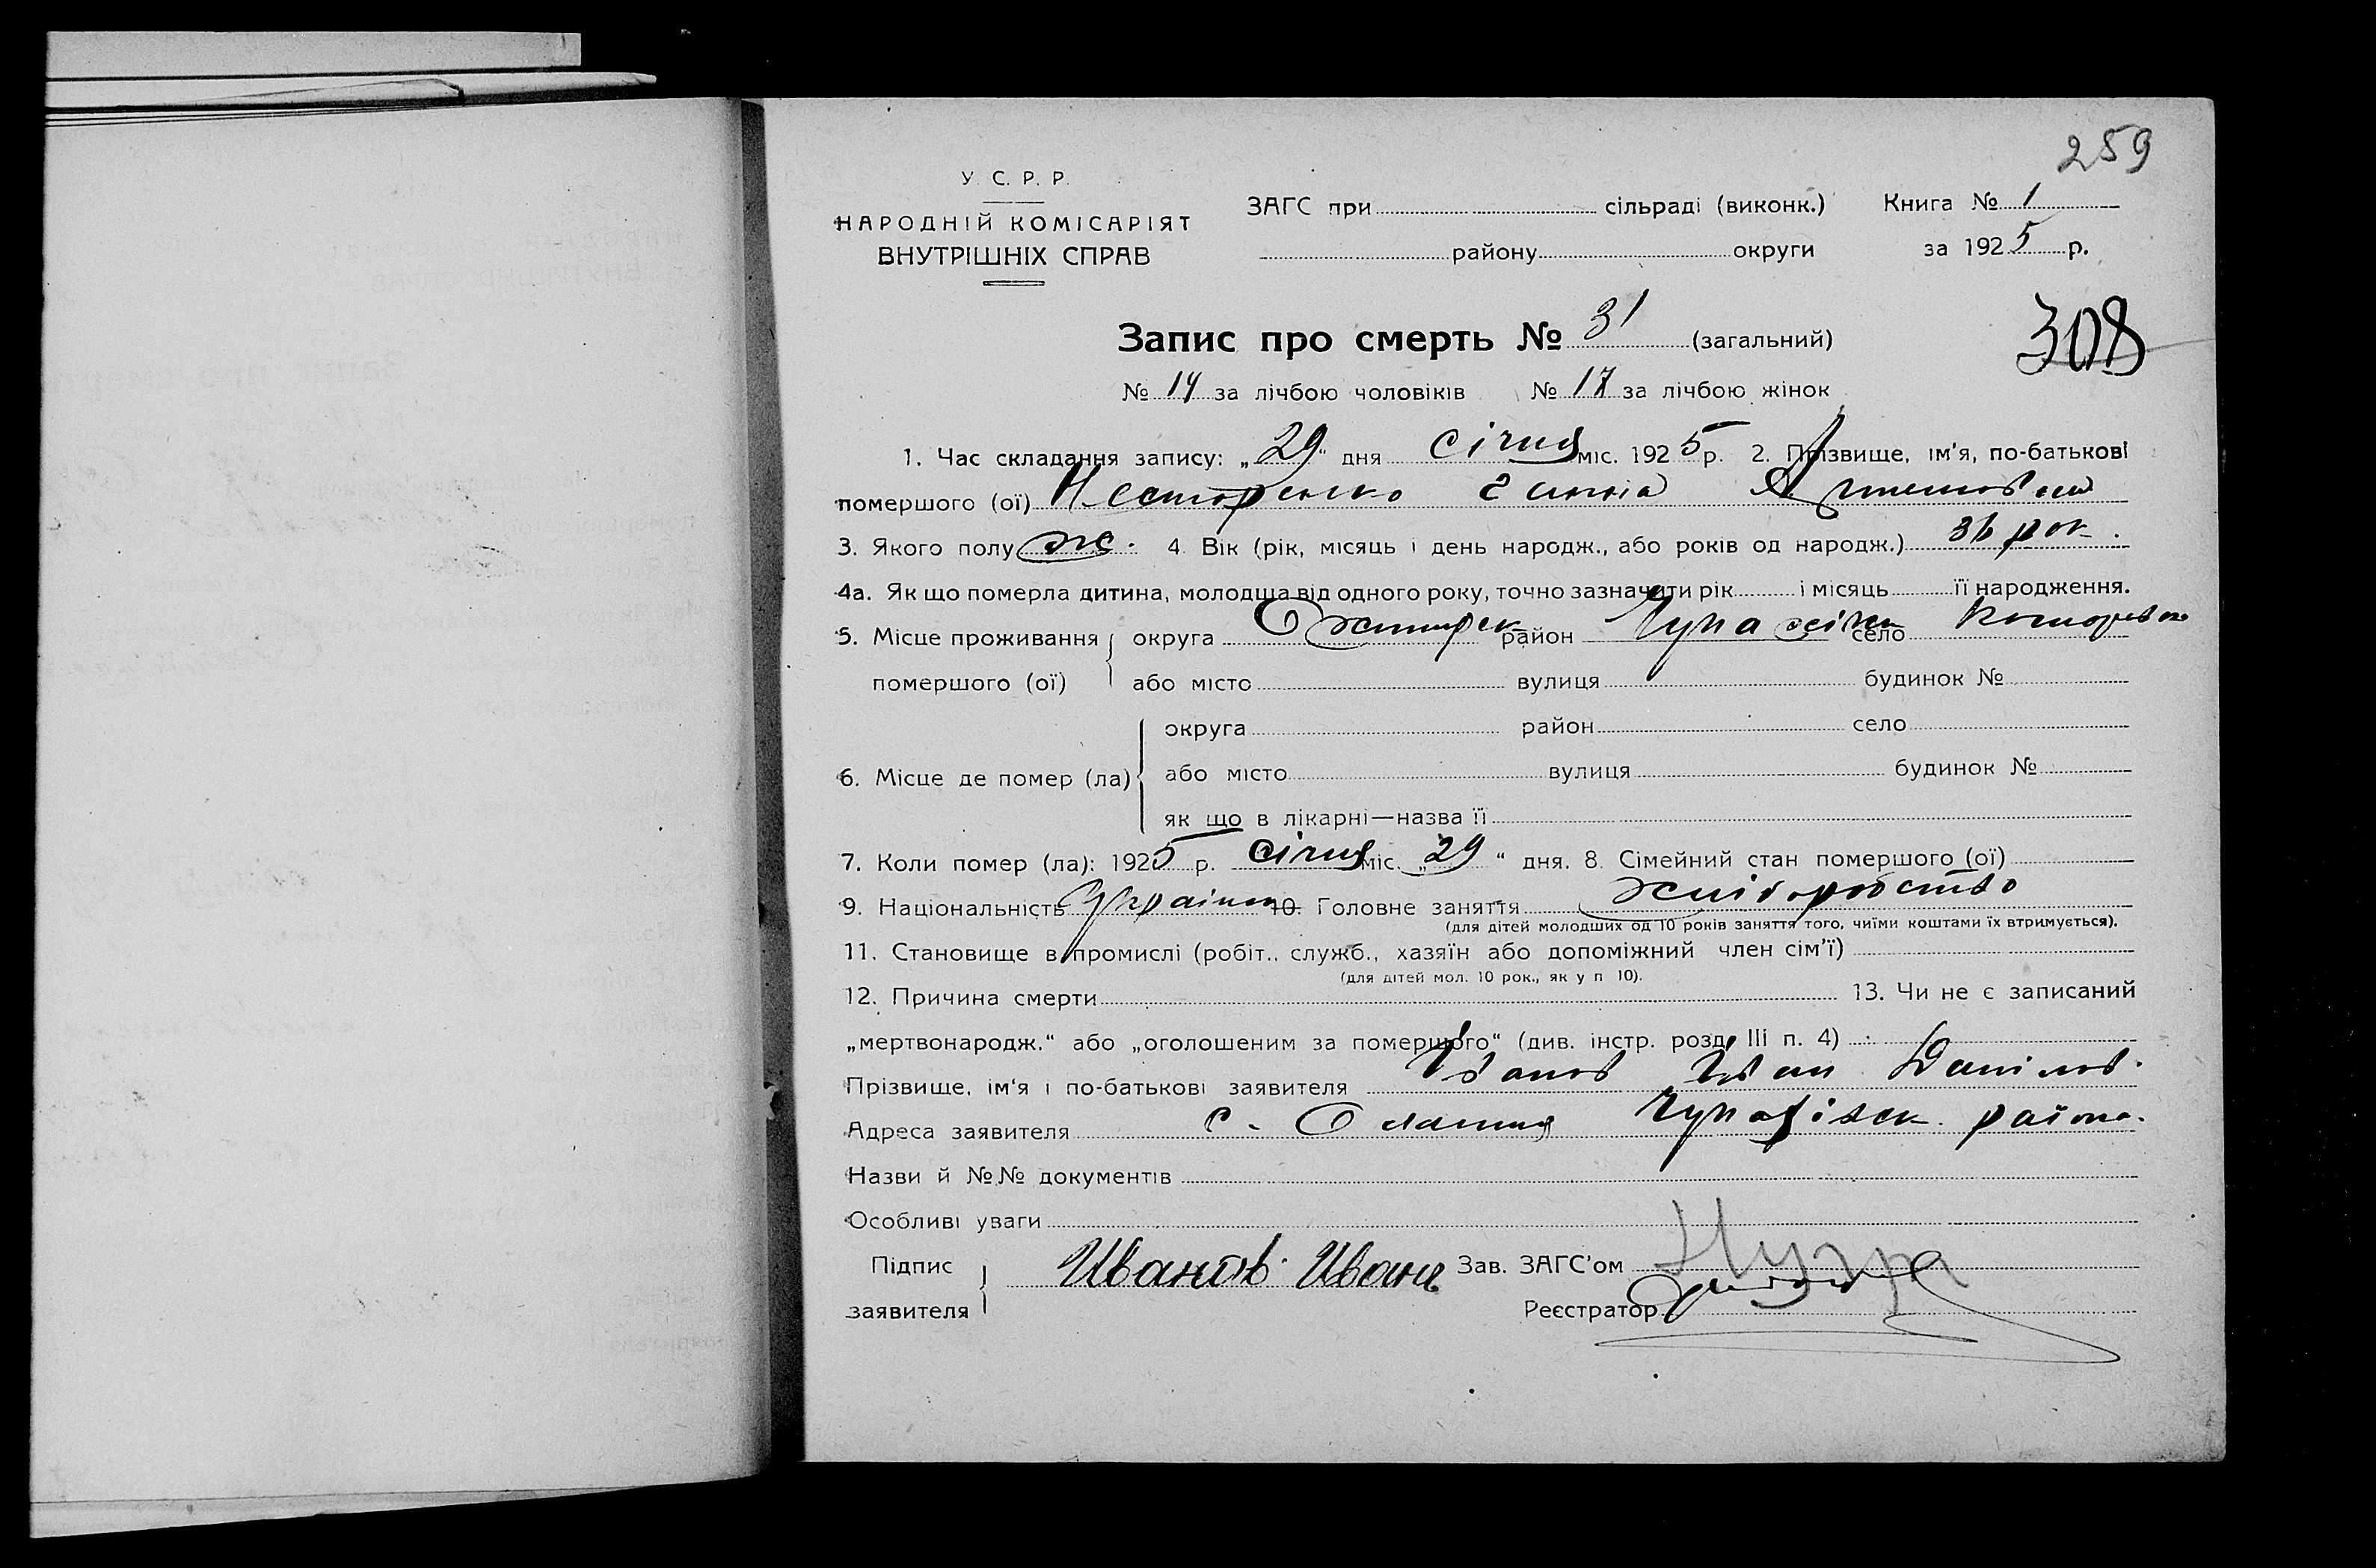 259
У. С. Р. Р.
НАРОДНІЙ КОМІСАРІЯТ
ВНУТРІШНІХ СПРАВ
ЗАГС при сільраді (виконк.) Книга № 1
району округи за 1925 р.
Запис про смерть № 31 (загальний)
308
№ 14 за лічбою чоловіків № 17 за лічбою жінок
1. Час складання запису: „29“ дня січня міс. 1925 р. 2. Прізвище, ім'я, по-батькові
помершого (ої) Несторенко Ганна
3. Якого полу ж. 4. Вік (рік, місяць і день народж., або років од народж.) 36 рок.
4а. Як що померла дитина, молодща від одного року, точно зазначити рік і місяць її народження.
5. Місце проживання округа Охтирськ район Чупахівськ село
помершого (ої) або місто вулиця будинок №
округа район село
6. Місце де помер (ла) або місто вулиця будинок №
як що в лікарні—назва її
7. Коли помер (ла): 1925 р. січня міс. „29“ дня. 8. Сімейний стан помершого (ої)
9. Національність Україн 10. Головне заняття хліборобство
(для дітей молодших од 10 років заняття того, чиїми коштами їх втримується).
11. Становище в промислі (робіт., служб., хазяїн або допоміжний член сім'ї)
(для дітей мол. 10 рок., як у п 10).
12. Причина смерти 13. Чи не є записаний
„мертвонародж.“ або „оголошеним за помершого“ (див. інстр. розд. III п. 4)
Прізвище, ім'я і по-батькові заявителя Іванов Іван Данілов.
Адреса заявителя с. Олешня Чупахівск. району
Назви й №№ документів
Особливі уваги
Підпис Иванов Иванъ Зав. ЗАГС'ом
заявителя Реєстратор